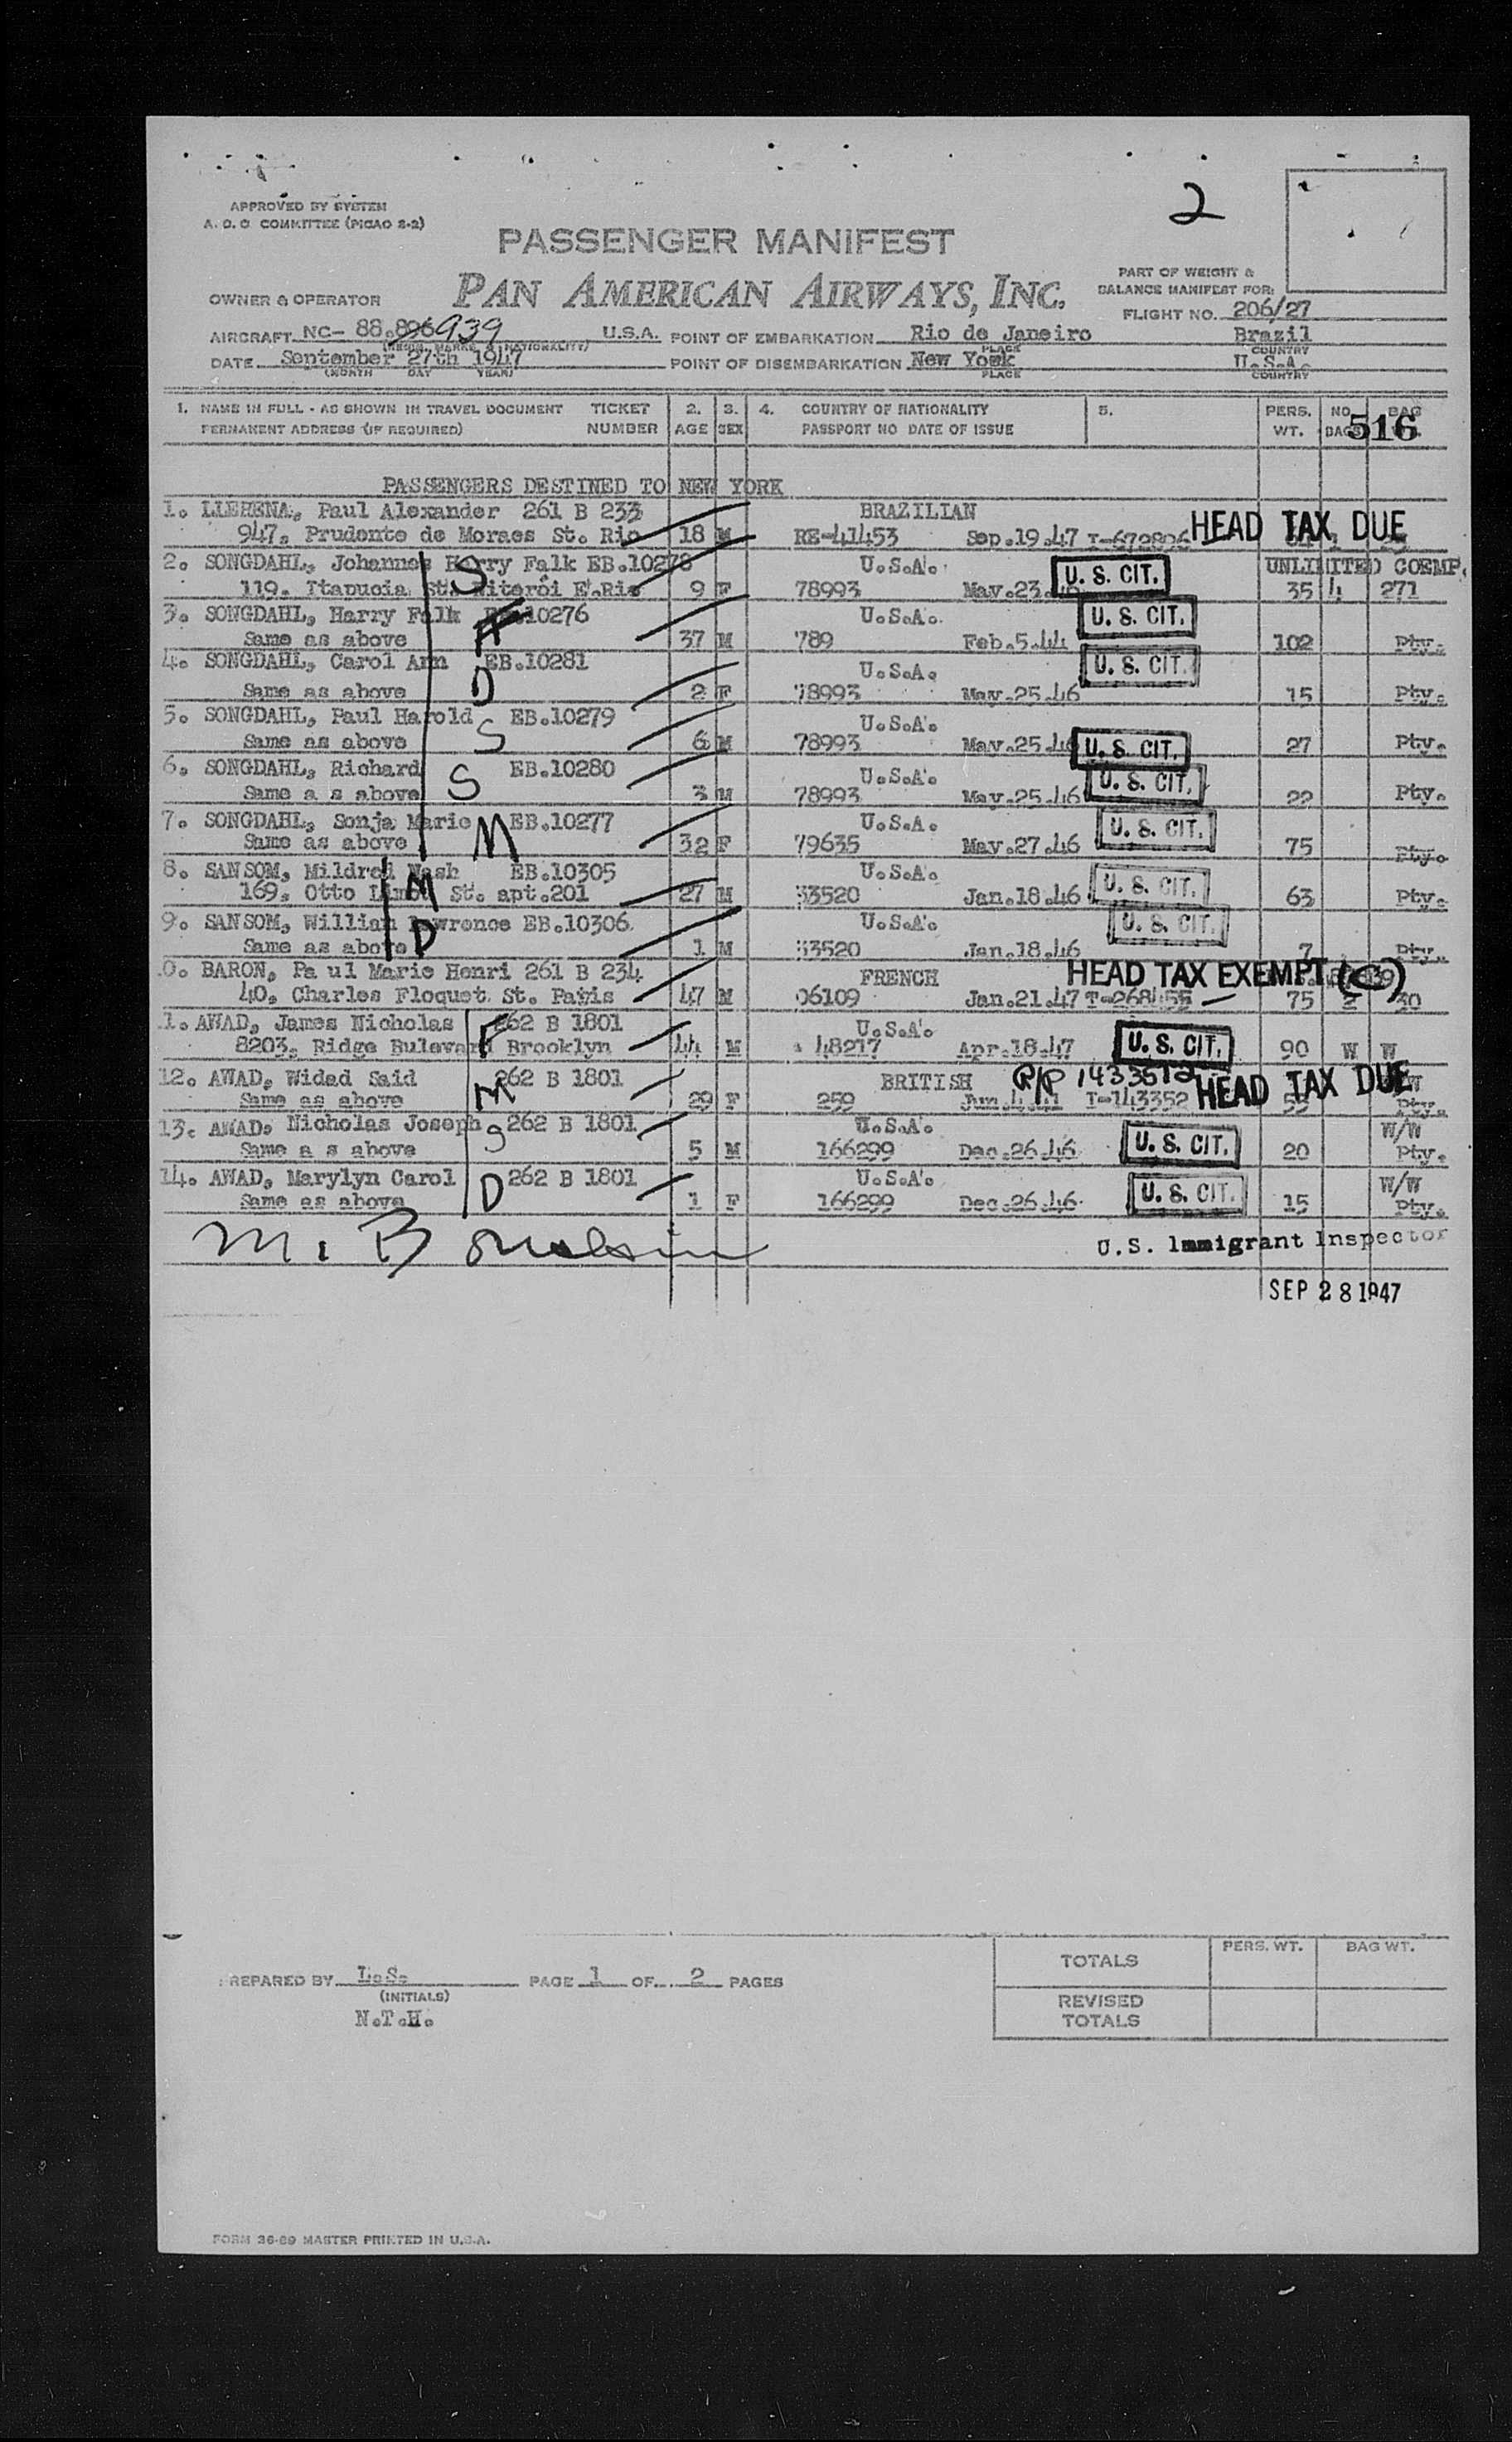 2
APPROVED BY SYSTEM
A.O.C COMMITTEE (PICAO 2-2)
PASSENGER MANIFEST
PAN AMERICAN AIRWAYS, INC.
PART OF WEIGHT &
BALANCE MANIFEST FOR:
OWNER & OPERATOR
FLIGHT NO. 206/27
AIRCRAFT NC- 88.896 939 U.S.A. POINT OF EMBARKATION Rio de Janeiro Brazil
(REGN. MARKS & NATIONALITY) PLACE COUNTRY
DATE September 27th 1947 POINT OF DISEMBARKATION New York U.S.A.
(MONTH DAY YEAR) PLACE COUNTRY
1. NAME IN FULL - AS SHOWN IN TRAVEL DOCUMENT TICKET 2. 3. 4. COUNTRY OF NATIONALITY 5. PERS. NO. BAG
PERMANENT ADDRESS (IF REQUIRED) NUMBER AGE SEX PASSPORT NO DATE OF ISSUE WT. BAGS 516
PASSENGERS DESTINED TO NEW YORK
1. LLERENA, Paul Alexander 261 B 233 BRAZILIAN
947. Prudente de Moraes St. Rio 18 M RE-41453 Sep.19.47 I-672806 HEAD TAX DUE
2. SONGDAHL, Johannes Harry Falk EB.10278 S U.S.A. UNLIMITED COEMP.
119. Itapucia St. Niteroi E.Rio 9 F 78993 May.23. U. S. CIT. 35 4 271
3. SONGDAHL, Harry Falk 10276 F U.S.A. U. S. CIT.
Same as above 37 M 789 Feb.5.44 102 Pty.
4. SONGDAHL, Carol Ann EB.10281 D U.S.A. U. S. CIT.
Same as above 2 F 78993 May.25.46 15 Pty.
5. SONGDAHL, Paul Harold EB.10279 S U.S.A.
Same as above 6 M 78993 May.25.46 U. S. CIT. 27 Pty.
6. SONGDAHL, Richard EB.10280 S U.S.A. U. S. CIT.
Same a s above 3 M 78993 May.25.46 22 Pty.
7. SONGDAHL, Sonja Marie EB.10277 M U.S.A. U. S. CIT.
Same as above 32 F 79635 May.27.46 75 Pty.
8. SANSOM, Mildred Nash EB.10305 M U.S.A. U. S. CIT.
169. Otto St. apt.201 27 M 33520 Jan.18.46 63 Pty.
9. SANSOM, William Lawrence EB.10306 D U.S.A. U. S. CIT.
Same as above 1 M 33520 Jan.18.46 7 Pty.
0. BARON, Pa ul Marie Henri 261 B 234 FRENCH HEAD TAX EXEMPT
40. Charles Floquet St. Paris 47 M 06109 Jan.21.47 T-268455 75 2 30
1. AWAD, James Nicholas 262 B 1801 F U.S.A.
8203. Ridge Bulevard Brooklyn 44 M 48217 Apr.18.47 U. S. CIT. 90 W W
12. AWAD, Widad Said 262 B 1801 M BRITISH P/P 1433512 HEAD TAX DUE
Same as above 29 F 259 Jun.4.41 I-143352 55 Pty.
13. AWAD, Nicholas Joseph 262 B 1801 S U.S.A. W/W
Same a s above 5 M 166299 Dec.26.46 U. S. CIT. 20 Pty.
14. AWAD, Marylyn Carol 262 B 1801 D U.S.A. W/W
Same as above 1 F 166299 Dec.26.46 U. S. CIT. 15 Pty.
U.S. Immigrant Inspector
SEP 28 1947
PERS. WT. BAG WT.
TOTALS
REVISED TOTALS
PREPARED BY L.S. PAGE 1 OF 2 PAGES
(INITIALS)
N.T.H.
FORM 36-89 MASTER PRINTED IN U.S.A.